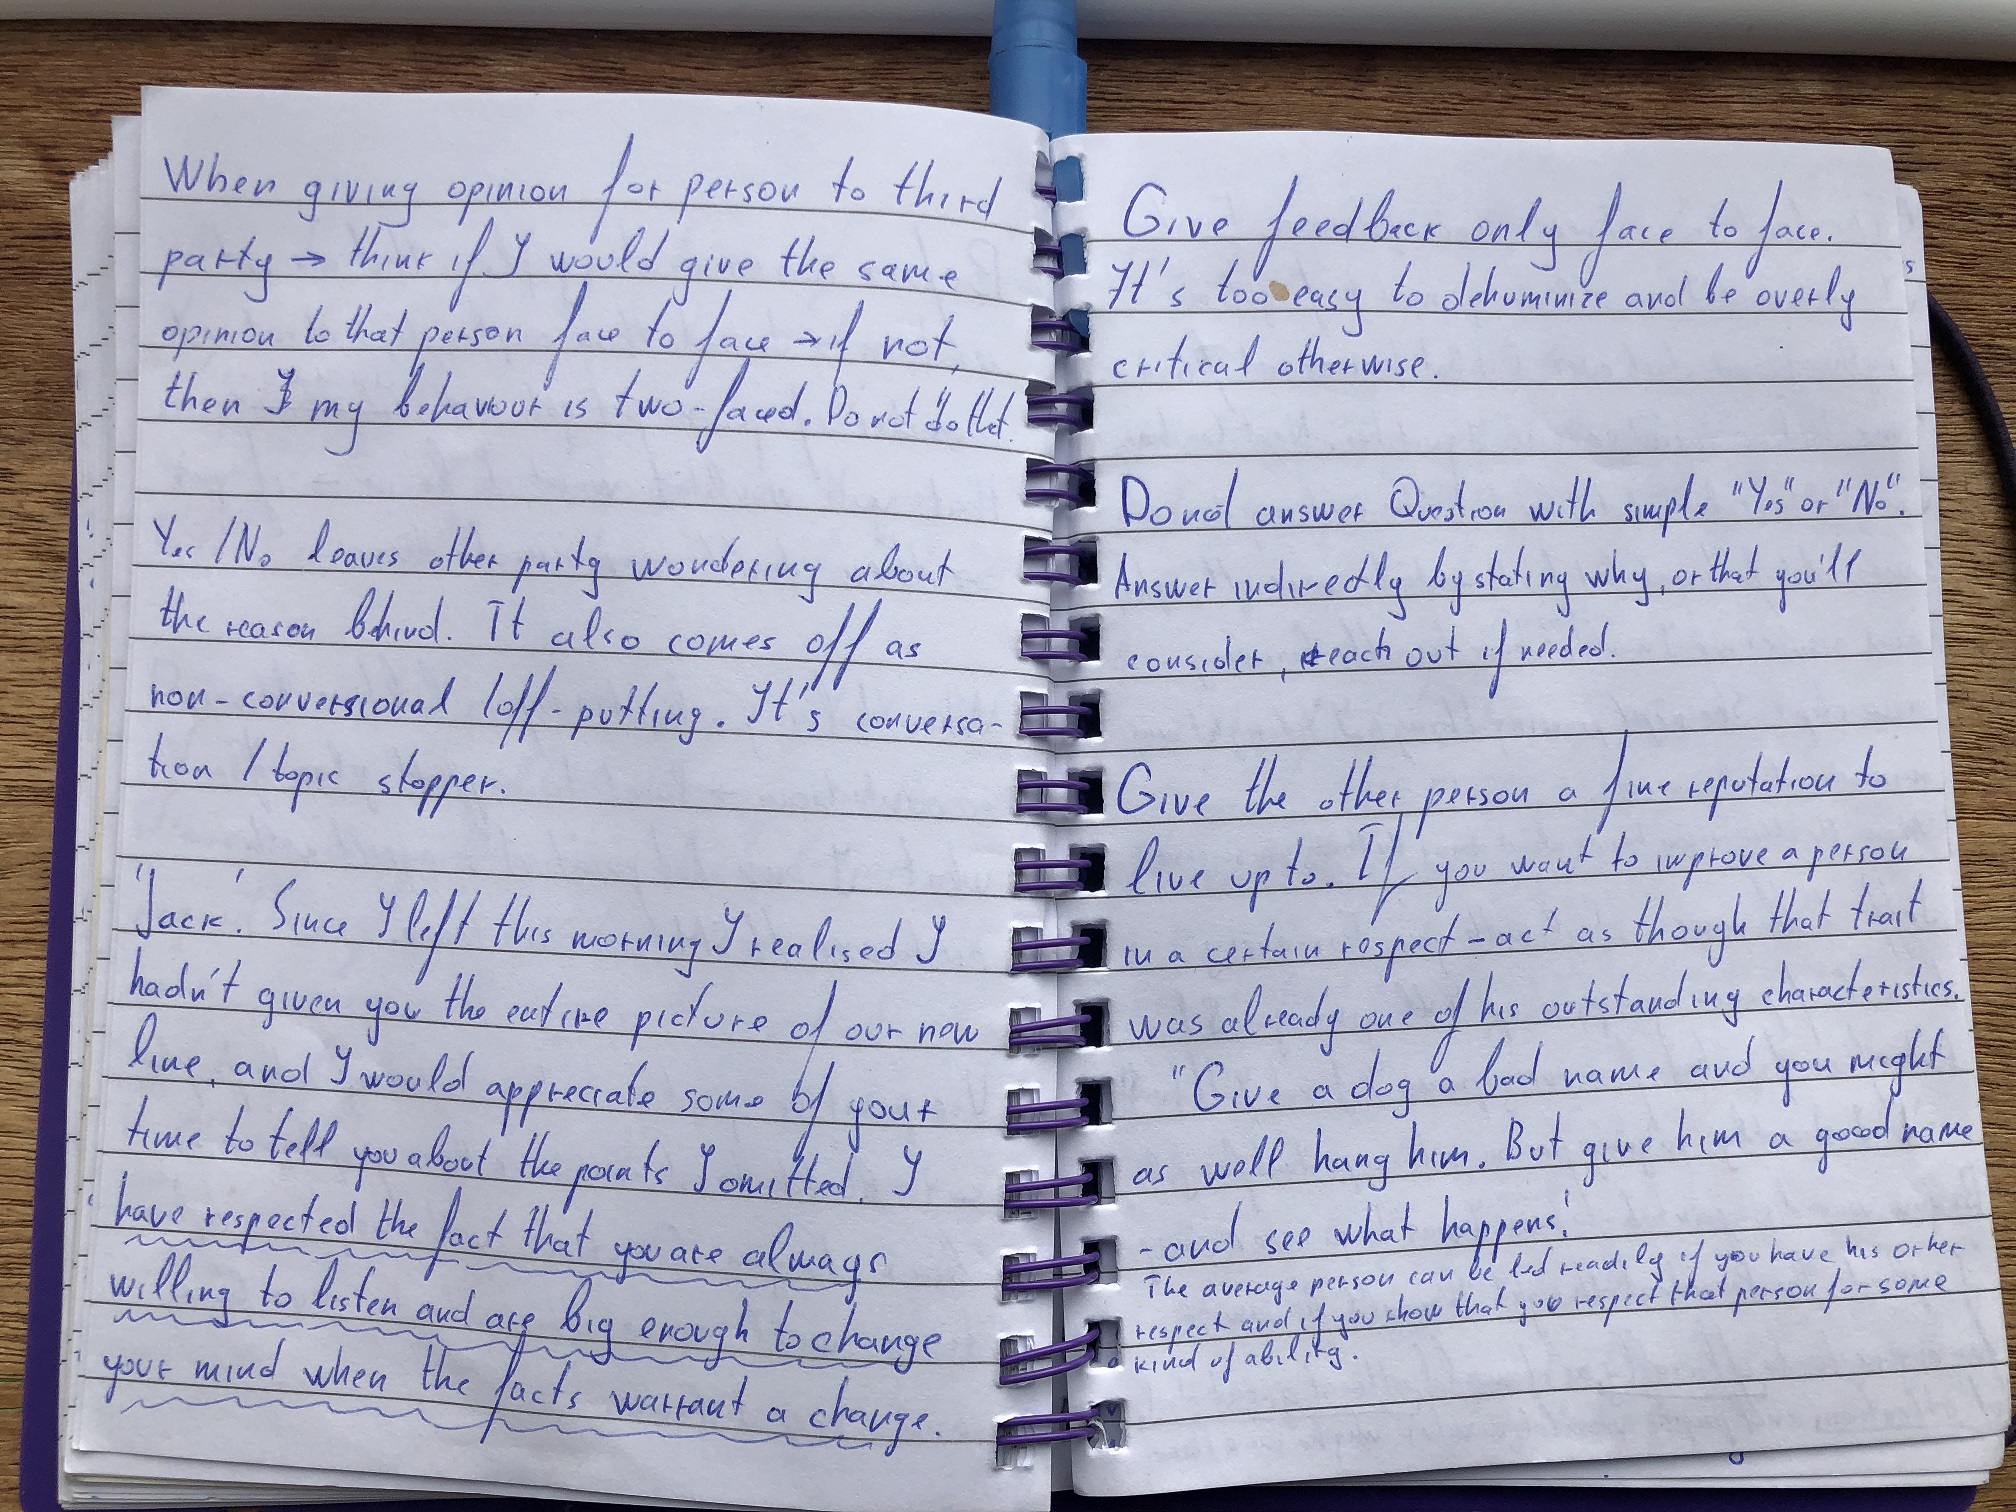 When giving opinion for person to third
party → think if I would give the same
opinion to that person face to face → if not,
then my behaviour is two-faced. Do not do that.
Yes / No leaves other party wondering about
the reason behind. It also comes off as
non-conversional / off-putting. It's conversa-
tion / topic stopper.
'Jack'. Since I left this morning I realised I
hadn't given you the entire picture of our new
line, and I would appreciate some of your
time to tell you about the points I omitted. I
have respected the fact that you are always
willing to listen and are big enough to change
your mind when the facts warrant a change.
Give feedback only face to face.
It's too easy to dehuminize and be overly
critical otherwise.
Do not answer Question with simple "Yes" or "No".
Answer indirectly by stating why, or that you'll
consider, reach out if needed.
Give the other person a fine reputation to
live up to. If you want to improve a person
in a certain respect – act as though that trait
was already one of his outstanding characteristics.
"Give a dog a bad name and you might
as well hang him. But give him a good name
- and see what happens!
The average person can be led readily if you have his or her
respect and if you show that you respect that person for some
kind of ability.